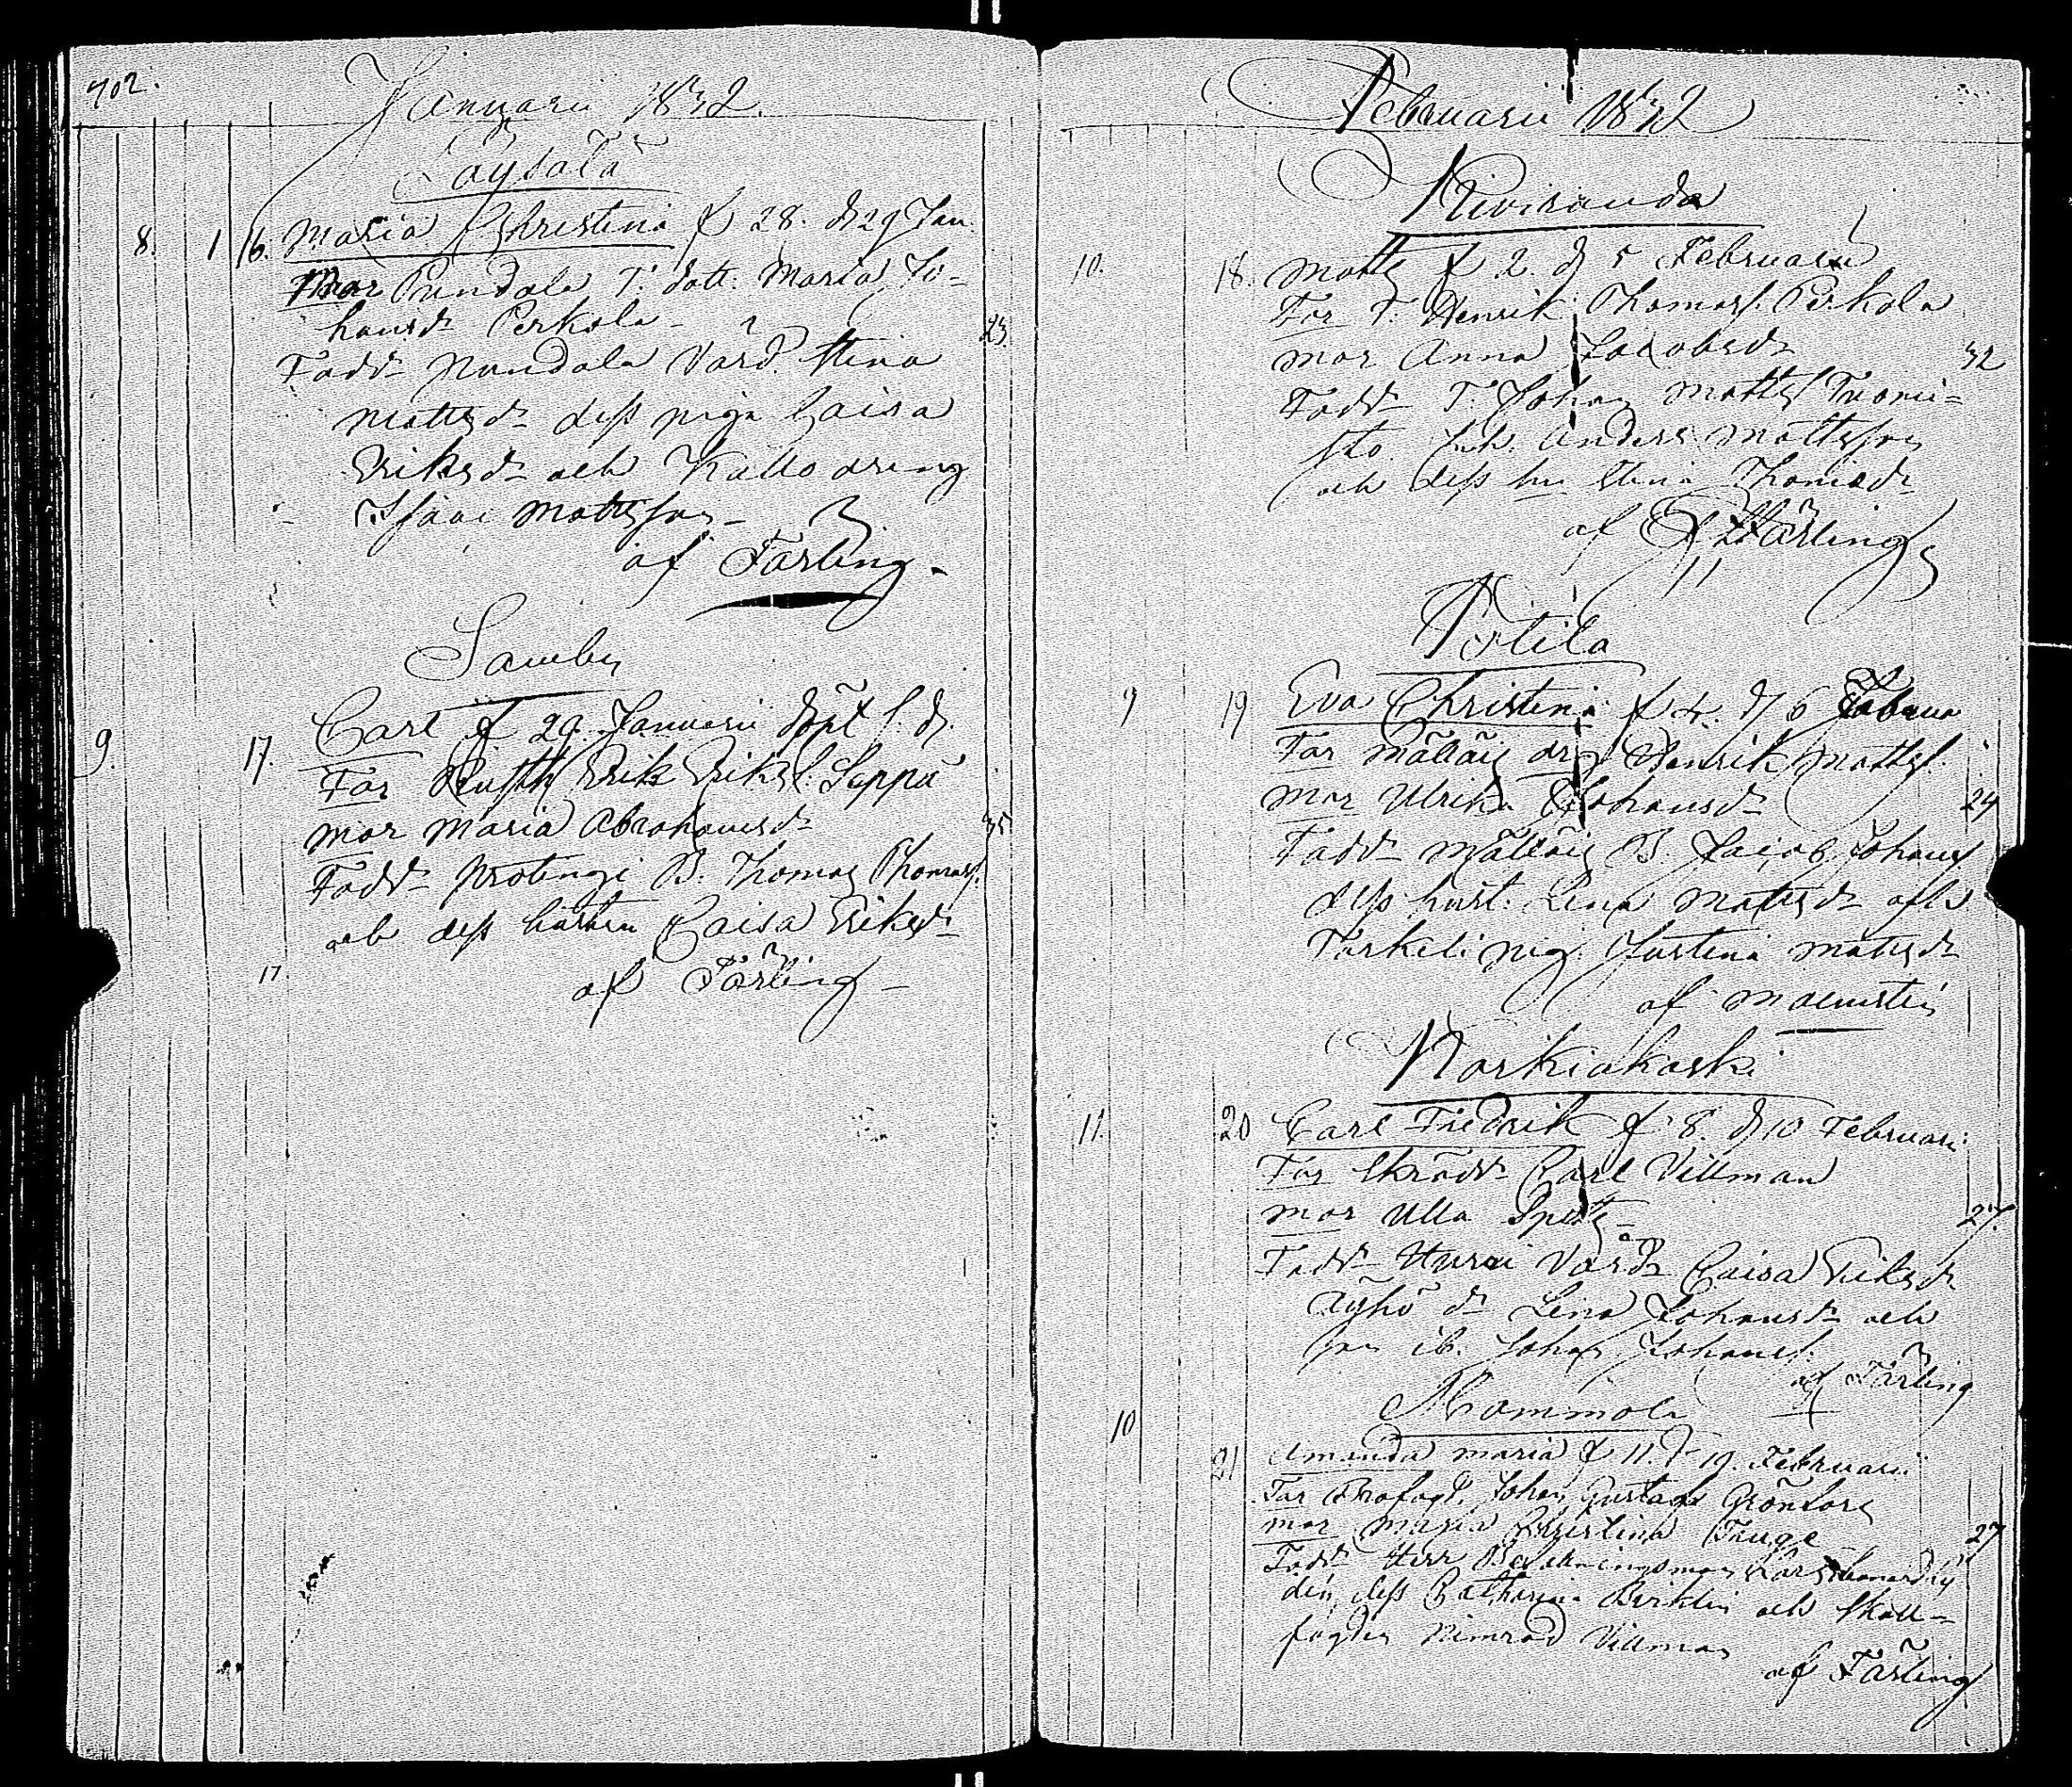 402.
Januarii 1832.
Löysälä
8. 1 16. Maria Christina f 28. d 29 Jan.
Mor Pundala T. dott. Maria Jo-
hansdr Perkola - 23.
Faddr Pundala Värd. Stina
Mattsdr dess piga Caisa
Eriksdr och Kallo dreng
Isaac Mattsson -
af Färling.
Samby
9. 17. Carl f 29. Januarii döpt s. d.
Far Erik Eriks. Seppä
Mor Maria Abrahamsdr 35
Faddr Protingi B. Thomas Thomass.
och dess hustru Caisa Eriksdr
17 af Färling -
Februarii 1832
Kiviranda
10. 18. Matts f 2. d 5 Februarii
Far T. Henrik Thomass. Perkola
Mor Anna Jacobsdr 32
Faddr T. Johan Mattss Tuomi-
sto. Inh. Anders Mattsson
och dess hu Stina Thomasdr
af Färling
Potila
9 19 Eva Christina f 4. d 6 Februa
Far Mälläis drg Henrik Mattss.
Mor Ulrika Johansdr 24
Faddr Mälläis B. Jacob Johanss
dess hust. Lena Mattsdr och
Tarkeli pig. Justina Mattsdr
af Malmsten
Narkiakoski
11. 20 Carl Fredrik f 8. d 10 Februari
Far Skräddr Carl Villman
Mor Ulla Spets 27.
Faddr Värdr Caisa Eriksdr
Äyhö dr Lena Johansdr och
son ib. Johan Johanss.
af Färling
Mommola
10 21 Amanda Maria f 11. d 19. Februarii
Far Johan Gustaf Grönfors
Mor Maria Christina Tauge 27
Faddr Herr Beväkningsman
den, dess Catharina och Skall-
fogden Nimrod Villman
af Färling